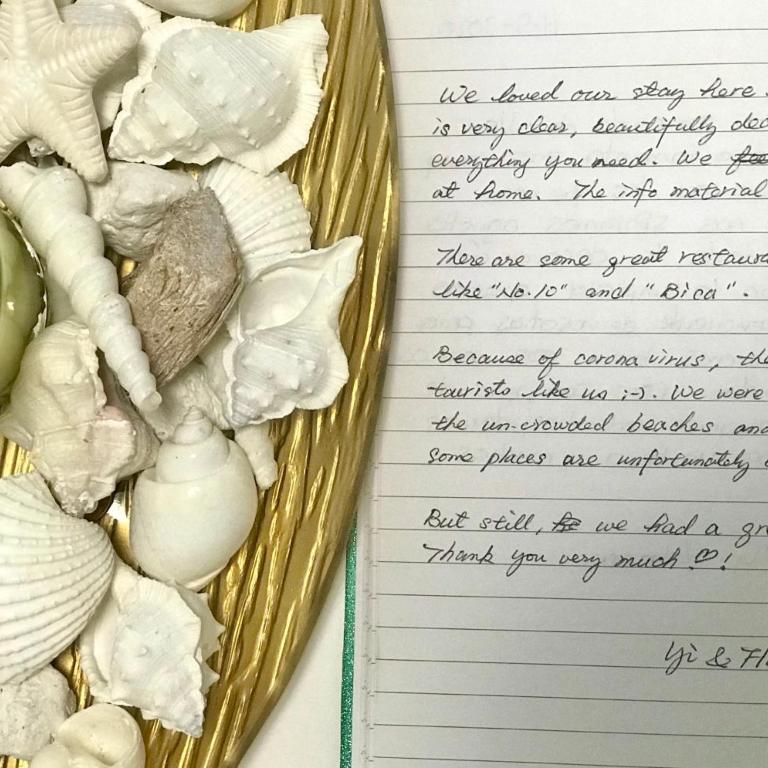 We loved our stay here.
is very clear, beautifully dec
everything you need. We
at home. The info material
There are some great restaura
like "No.10" and "Bica".
Because of corona virus, the
tourists like us ;-). We were
the un-crowded beaches and
some places are unfortunately
But still, we had a gr
Thank you very much ♡!
Yi &